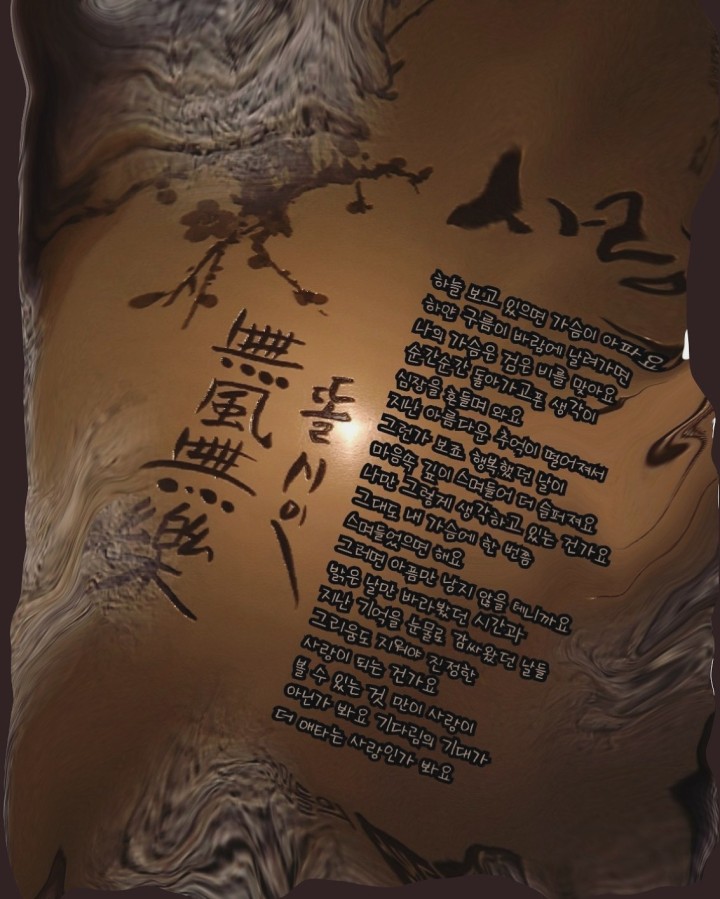 사랑
하늘 보고 있으면 가슴이 아파요
하얀 구름이 바람에 날려가면
나의 가슴은 검은 비를 맞아요
순간순간 돌아가고픈 생각이
심장을 흔들며 와요
지난 아름다운 추억이 떨어져서
그런가 보죠 행복했던 날이
마음속 깊이 스며들어 더 슬퍼져요
나만 그렇게 생각하고 있는 건가요
그대도 내 가슴에 한 번쯤
스며들었으면 해요
그러면 아픔만 남지 않을 테니까요
밝은 날만 바라봤던 시간과
지난 기억을 눈물로 감싸왔던 날들
그리움도 지워야 진정한
사랑이 되는 건가요
볼 수 있는 것 만이 사랑이
아닌가 봐요 기다림의 기대가
더 애타는 사랑인가 봐요
無風無樂